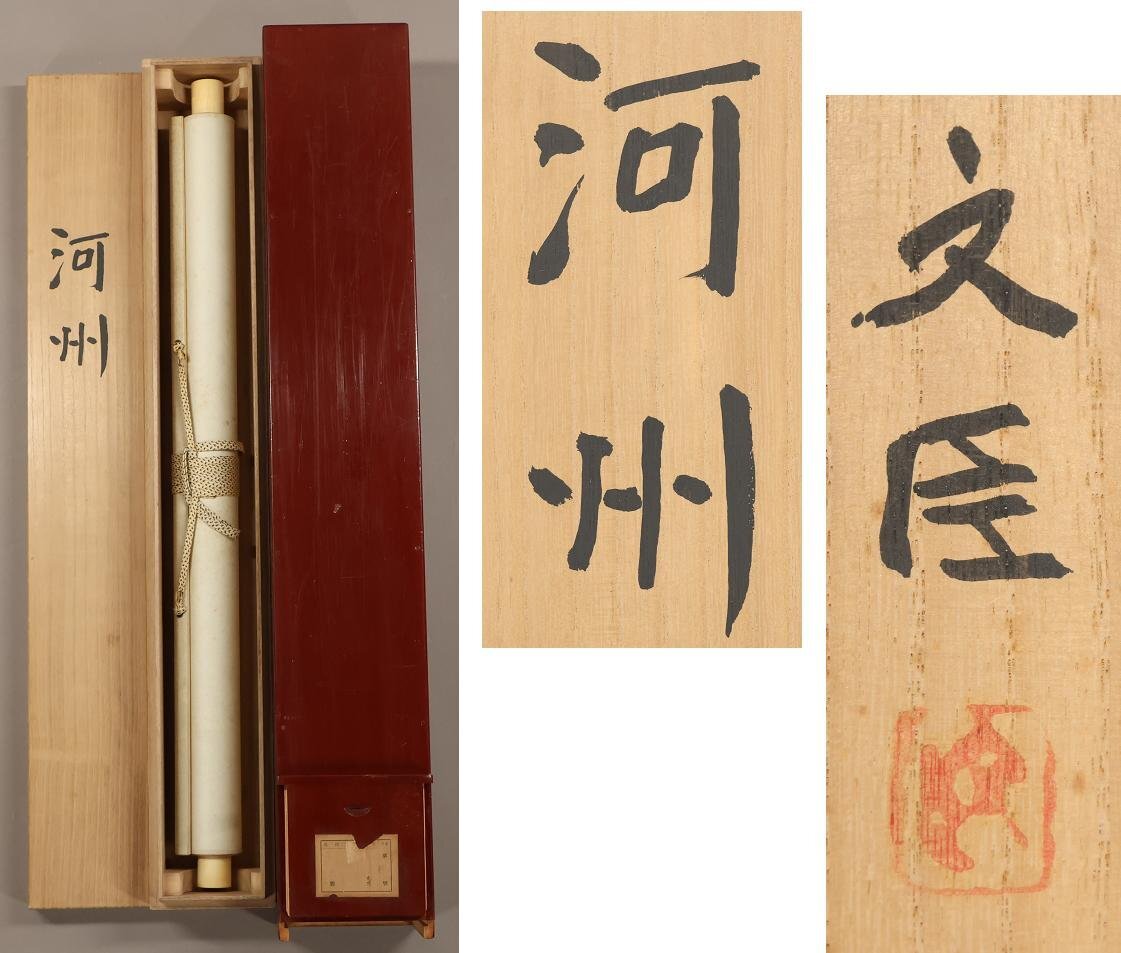 河州
河州
文臣